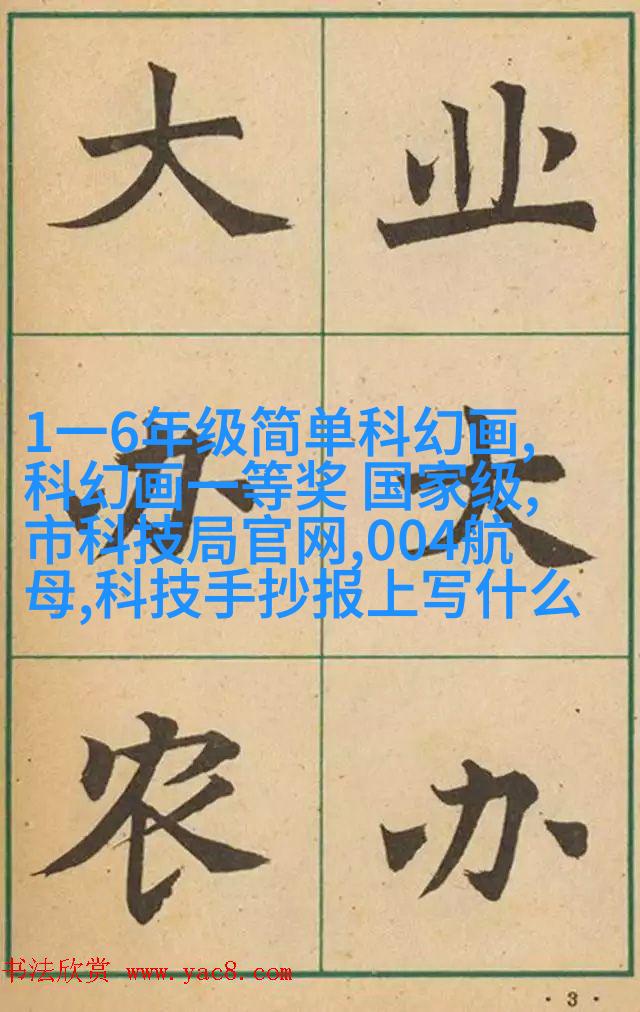 大办农
业大办
1一6年级简单科幻画,
科幻画一等奖 国家级,
市科技局官网,004航
母,科技手抄报上写什么
书法欣赏 www.yac8.com
·3·